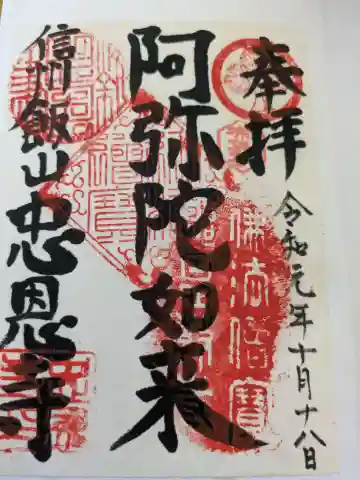 奉拝
令和元年十月十八日
阿弥陀如来
信州飯山忠恩寺
佛法僧寳